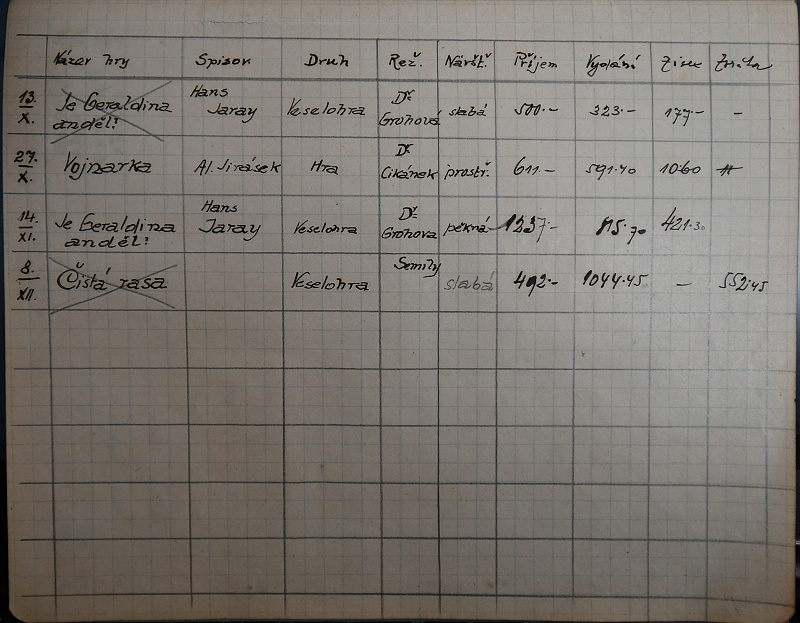 Název hry Spisov. Druh Rež. Návšť. Příjem Vydání Zisk Ztráta
13./X. Je Geraldina anděl! Hans Jaray Veselohra Dr. Grohová slabá 500.- 323.- 177.- -
27./X. Vojnarka Al. Jirásek Hra Dr. Cikánek prostř. 611.- 591.40 10.60
14./XI. Je Geraldina anděl! Hans Jaray Veselohra Dr. Grohova pěkná 1237.- 815.70 421.30
8./XII. Čistá rasa Veselohra Semily slabá 492.- 1044.45 - 552.45